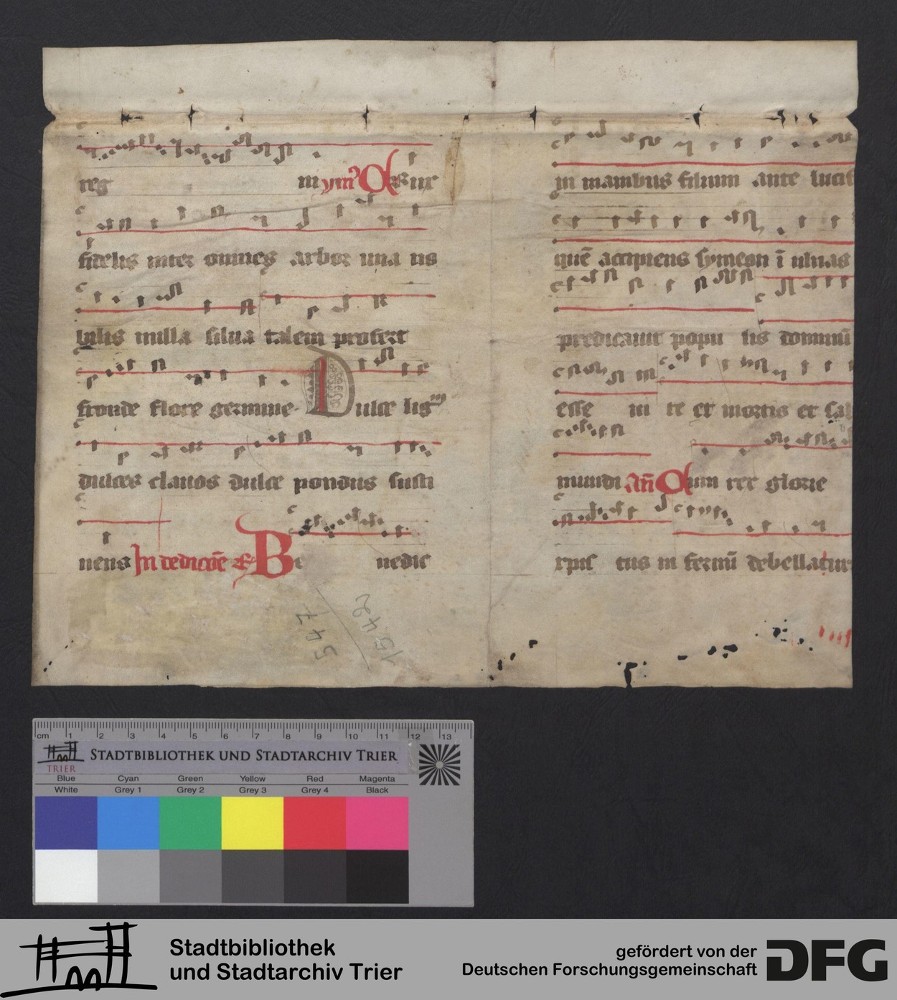 reg m ym̅ Crux
fidelis inter omnes arbor una no
bilis nulla silua talem profert
fronde flore germine. Dulce lig
dulces clauos dulce pondus susti
nens In dedicõe Be nedic
in manibus filium ante lucif
quẽ accipiens symeon ĩ ulnas
predicauit popu lis dominũ
esse m te et mortis et sal
mundi Añ Cum rex glorie
xpic tus in fernũ debellatur
547
1542
cm 1 2 3 4 5 6 7 8 9 10 11 12 13
TRIER
STADTBIBLIOTHEK UND STADTARCHIV TRIER
Blue Cyan Green Yellow Red Magenta
White Grey 1 Grey 2 Grey 3 Grey 4 Black
Stadtbibliothek
und Stadtarchiv Trier
gefördert von der
Deutschen Forschungsgemeinschaft
DFG